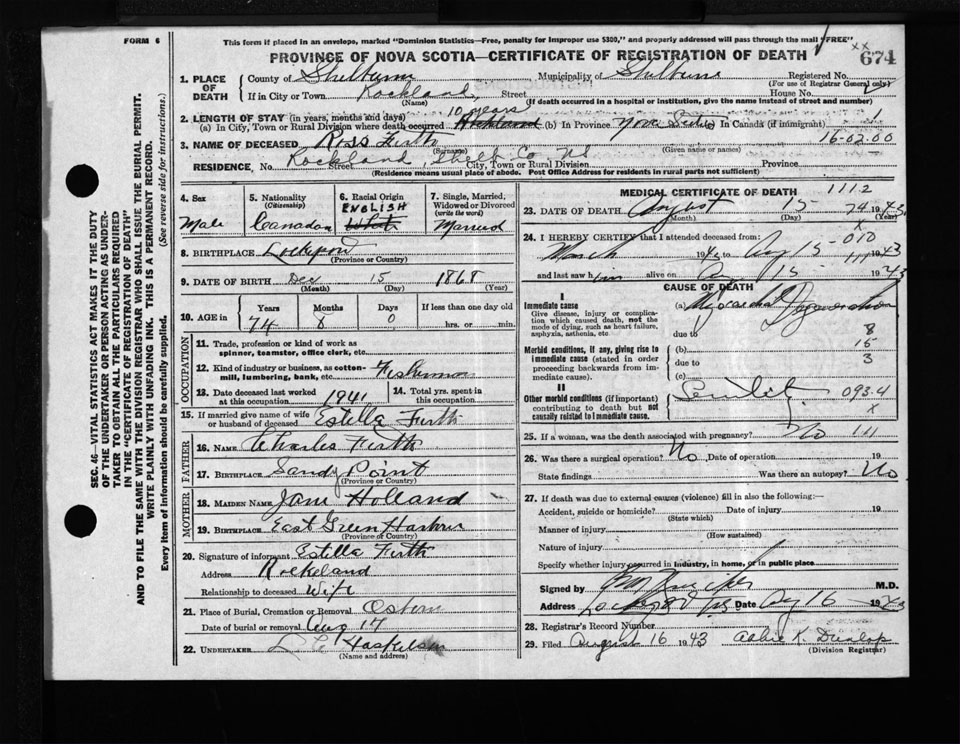 FORM 6
This form if placed in an envelope, marked "Dominion Statistics—Free, penalty for improper use $300," and properly addressed will pass through the mail "FREE"
PROVINCE OF NOVA SCOTIA—CERTIFICATE OF REGISTRATION OF DEATH
xx
674
SEC. 46—VITAL STATISTICS ACT MAKES IT THE DUTY
OF THE UNDERTAKER OR PERSON ACTING AS UNDER-
TAKER TO OBTAIN ALL THE PARTICULARS REQUIRED
IN THE "CERTIFICATE OF REGISTRATION OF DEATH"
AND TO FILE THE SAME WITH THE DIVISION REGISTRAR WHO SHALL ISSUE THE BURIAL PERMIT.
WRITE PLAINLY WITH UNFADING INK. THIS IS A PERMANENT RECORD.
Every item of information should be carefully supplied. (See reverse side for instructions.)
1. PLACE OF DEATH
County of Shelburne Municipality of Shelburne Registered No.
(For use of Registrar General only)
If in City or Town Rockland Street House No.
(Name) (If death occurred in a hospital or institution, give the name instead of street and number)
2. LENGTH OF STAY (in years, months and days) 10 years
(a) In City, Town or Rural Division where death occurred Rockland (b) In Province Nova Scotia In Canada (if immigrant)
1
3. NAME OF DECEASED Ross Firth 16-02-00
(Surname) (Given name or names)
RESIDENCE No. Rockland Street Shelb Co City, Town or Rural Division Province
(Residence means usual place of abode. Post Office Address for residents in rural parts not sufficient)
4. Sex Male
5. Nationality (Citizenship) Canadian
6. Racial Origin ENGLISH White
7. Single, Married, Widowed or Divorced (write the word) Married
8. BIRTHPLACE Lockeport
(Province or Country)
9. DATE OF BIRTH Dec 15 1868
(Month) (Day) (Year)
10. AGE in Years 74 Months 8 Days 0 If less than one day old hrs. or min.
OCCUPATION
11. Trade, profession or kind of work as spinner, teamster, office clerk, etc.
12. Kind of industry or business, as cotton-mill, lumbering, bank, etc. Fisherman
13. Date deceased last worked at this occupation 1941
14. Total yrs. spent in this occupation
15. If married give name of wife or husband of deceased Estella Firth
FATHER
16. NAME Charles Firth
17. BIRTHPLACE Sand Point
(Province or Country)
MOTHER
18. MAIDEN NAME Jane Holland
19. BIRTHPLACE East Green Harbour
(Province or Country)
20. Signature of informant Estella Firth
Address Rockeland
Relationship to deceased Wife
21. Place of Burial, Cremation or Removal
Date of burial or removal Aug 17
22. UNDERTAKER
(Name and address)
MEDICAL CERTIFICATE OF DEATH 1112
23. DATE OF DEATH August 15 1943
74
(Month) (Day) (Year)
24. I HEREBY CERTIFY that I attended deceased from:
x
010
March 1943 to Aug 15 1943
111
and last saw him alive on Aug 15 1943
CAUSE OF DEATH
I
Immediate cause
Give disease, injury or complication which caused death, not the mode of dying, such as heart failure, asphyxia, asthenia, etc.
(a) Myocardial Degeneration
due to 8
Morbid conditions, if any, giving rise to immediate cause (stated in order proceeding backwards from immediate cause).
(b) 15
due to 3
(c)
II
Other morbid conditions (if important) contributing to death but not causally related to immediate cause.
Senility 093.4
x
25. If a woman, was the death associated with pregnancy? No 111
26. Was there a surgical operation? No Date of operation 19
State findings Was there an autopsy? No
27. If death was due to external causes (violence) fill in also the following:—
Accident, suicide or homicide? Date of injury 19
(State which)
Manner of injury
(How sustained)
Nature of injury
Specify whether injury occurred in industry, in home, or in public place
Signed by M.D.
Address Lockeport NS Date Aug 16 1943
28. Registrar's Record Number
29. Filed August 16 1943 K Dunlop
(Division Registrar)